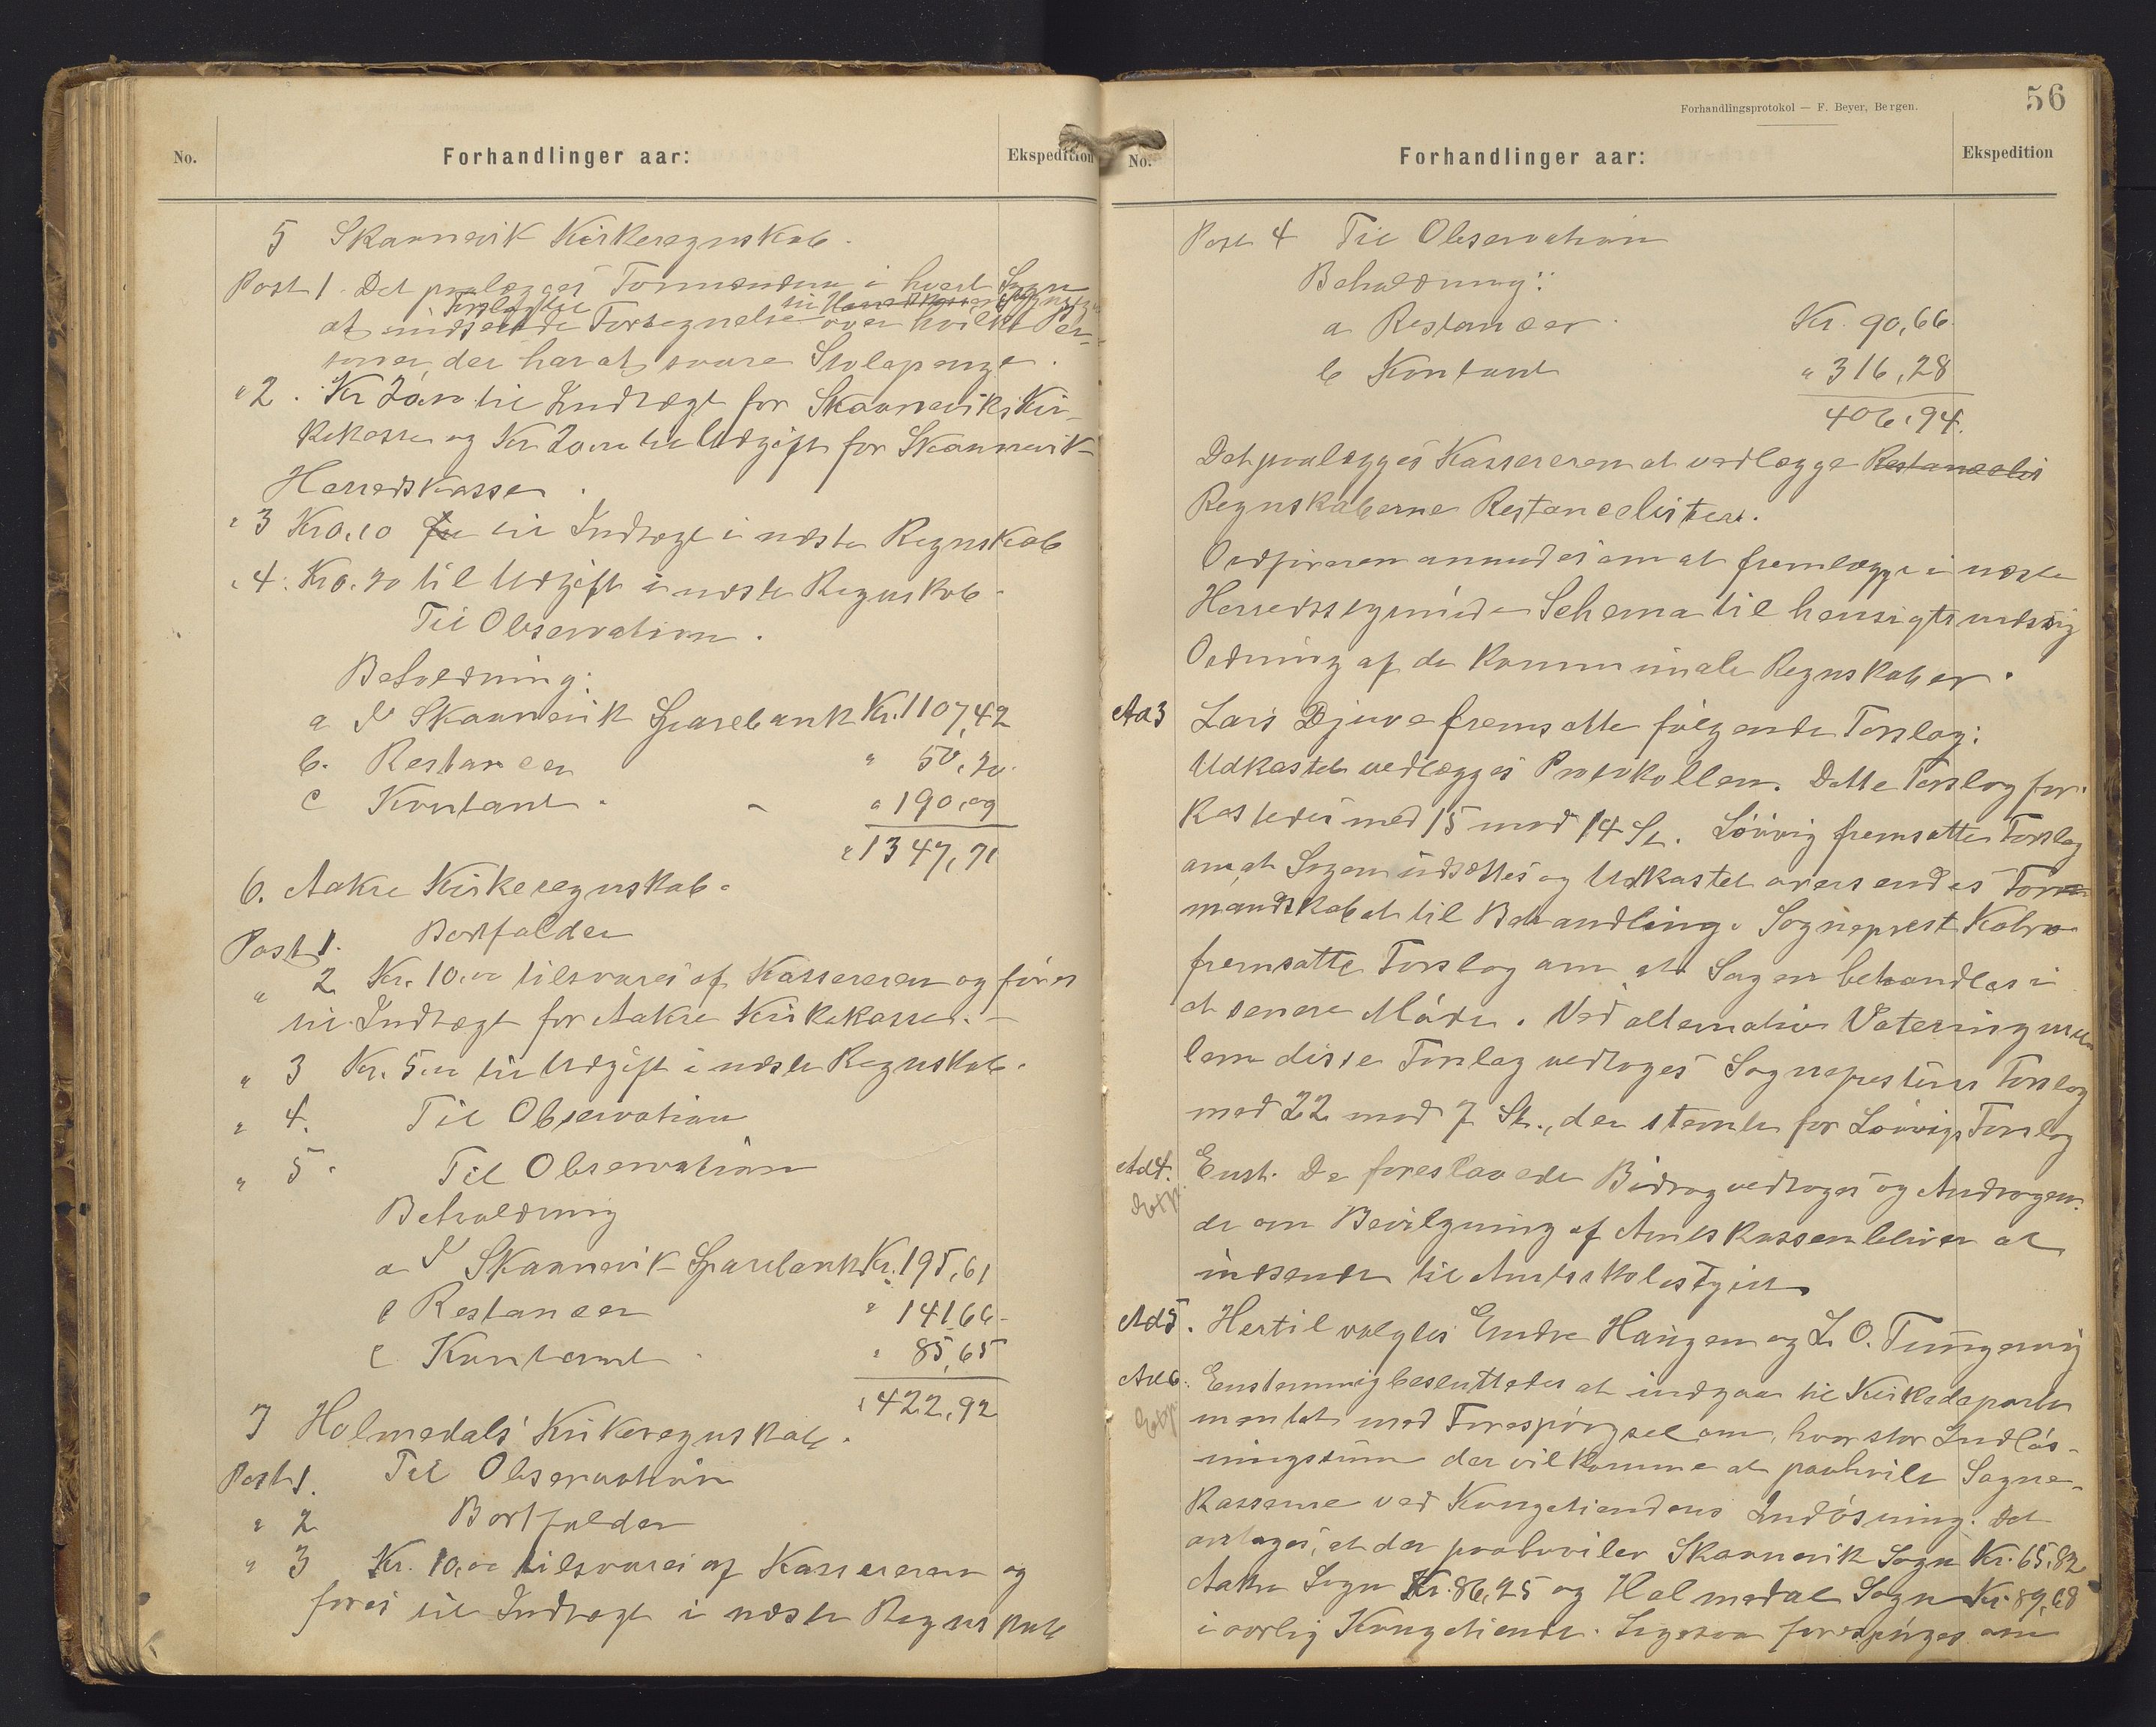 No.
Forhandlinger aar:
Ekspedition
5 Skaanevik Kirkeregnskab.
Post 1. Det paalægges Formændene i hvert Sogn
Forslag til til Herredskassereren
at indsende Fortegnelse over hvilke Per-
soner, der har at svare Stolepenge.
" 2. Kr 20,00 til Indtægt for Skaaneviks Kir-
kekasse og Kr 20,00 til Udgift for Skaanevik
Herredskasse.
" 3 Kr 0,10 til Indtægt i næste Regnskab
" 4. Kr 0.70 til Udgift i næste Regnskab.
Til Observation.
Beholdning:
a I Skaanevik Sparebank Kr. 1107,42
b. Restancer " 50,20.
c Kontant. " 190,09
" 1347,71
6. Aakre Kirkeregnskab.
Post 1. Bortfalder
" 2 Kr. 10.00 tilsvares af Kassereren og føres
til Indtægt for Aakre Kirkekasse.
" 3 Kr. 5.00 til Udgift i næste Regnskab.
" 4. Til Observation
" 5. Til Observation
Beholdning
a I Skaanevik Sparebank Kr. 195,61
b Restancer " 141,66
c Kontant. " 85,65
" 422,92
7 Holmedals Kirkeregnskab.
Post 1. Til Observation
" 2 Bortfalder
" 3 Kr. 10,00 tilsvares af Kassereren og
føres til Indtægt i næste Regnskab
Forhandlingsprotokol — F. Beyer, Bergen.
56
No.
Forhandlinger aar:
Ekspedition
Post 4 Til Observation
Beholdning:
a Restancer. Kr. 90,66.
b Kontant " 316,28
406,94.
Det paalægges Kassereren at vedlægge Restancelis
Regnskaberne Restancelister.
Ordføreren anmodes om at fremlægge i næste
Herredsstyrmøde Schema til hensigtsmæssig
Ordning af de kommunale Regnskaber.
Ad 3 Lars Djuve fremsatte følgende Forslag:
Udkastet vedlægges Protokollen. Dette Forslag for-
kastedes med 15 mod 14 St. Løvvig fremsatte Forslag
om, at Sagen udsættes og Udkastet oversendes For-
mandskabet til Behandling. Sogneprest Kobro
fremsatte Forslag om at Sagen behandles i
et senere Møde. Ved alternativ Votering mel-
lem disse Forslag vedtoges Sogneprestens Forslag
med 22 mod 7 St., der stemte for Løvvigs Forslag
Ad 4. Enst. De foreslaaede Bidrag vedtoges og Andragen-
Exp.
de om Bevilgning af Amtskassen bliver at
indsende til Amtsskolestyret
Ad 5. Hertil valgtes Endre Haugen og L. O. Tungesvig
Ad 6. Enstemmig besluttedes at indgaa til Kirkedeparte
Exp.
mentet med Forespørgsel om, hvor stor Indløs-
ningssum der vil komme at paahvile Sogne-
kasserne ved Kongetiendens Indløsning. Det
antages, at der paahviler Skaanevik Sogn Kr. 65,82
Aakre Sogn Kr. 86,25 og Holmedal Sogn Kr. 89,68
i aarlig Kongetiende. Ligesaa forespørges om